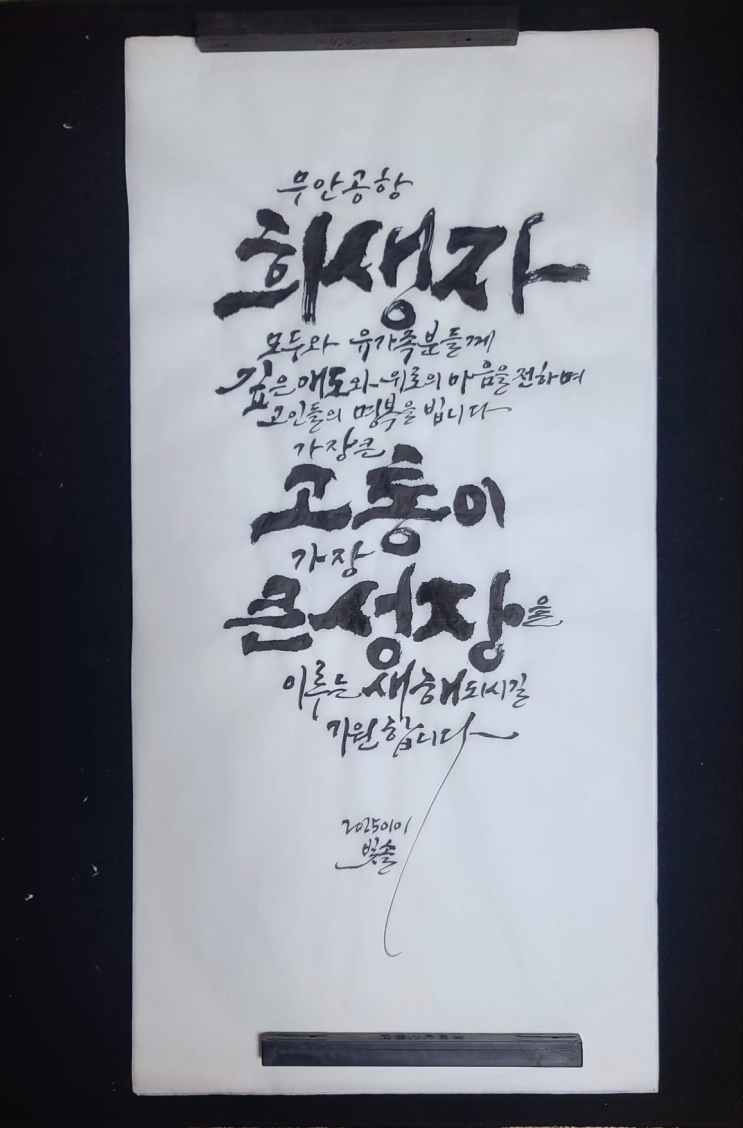 무안공항
희생자
모두와 유가족분들께
깊은 애도와 위로의 마음을 전하며
고인들의 명복을 빕니다
가장큰
고통이
가장
큰성장을
이루는 새해 되시길
기원합니다
20250101
빛솔